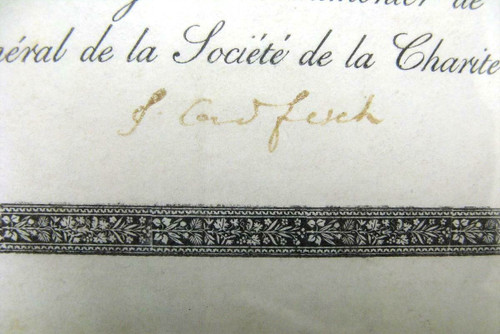 de
néral de la Société de la Charite
J. Card fesch